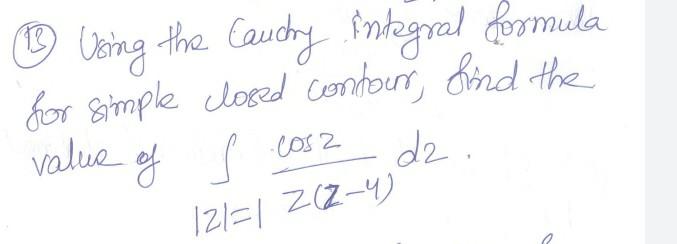 13 Using the Cauchy integral formula
for simple closed contour, find the
value of ∫ cos z / z(z-4) dz .
|z|=1